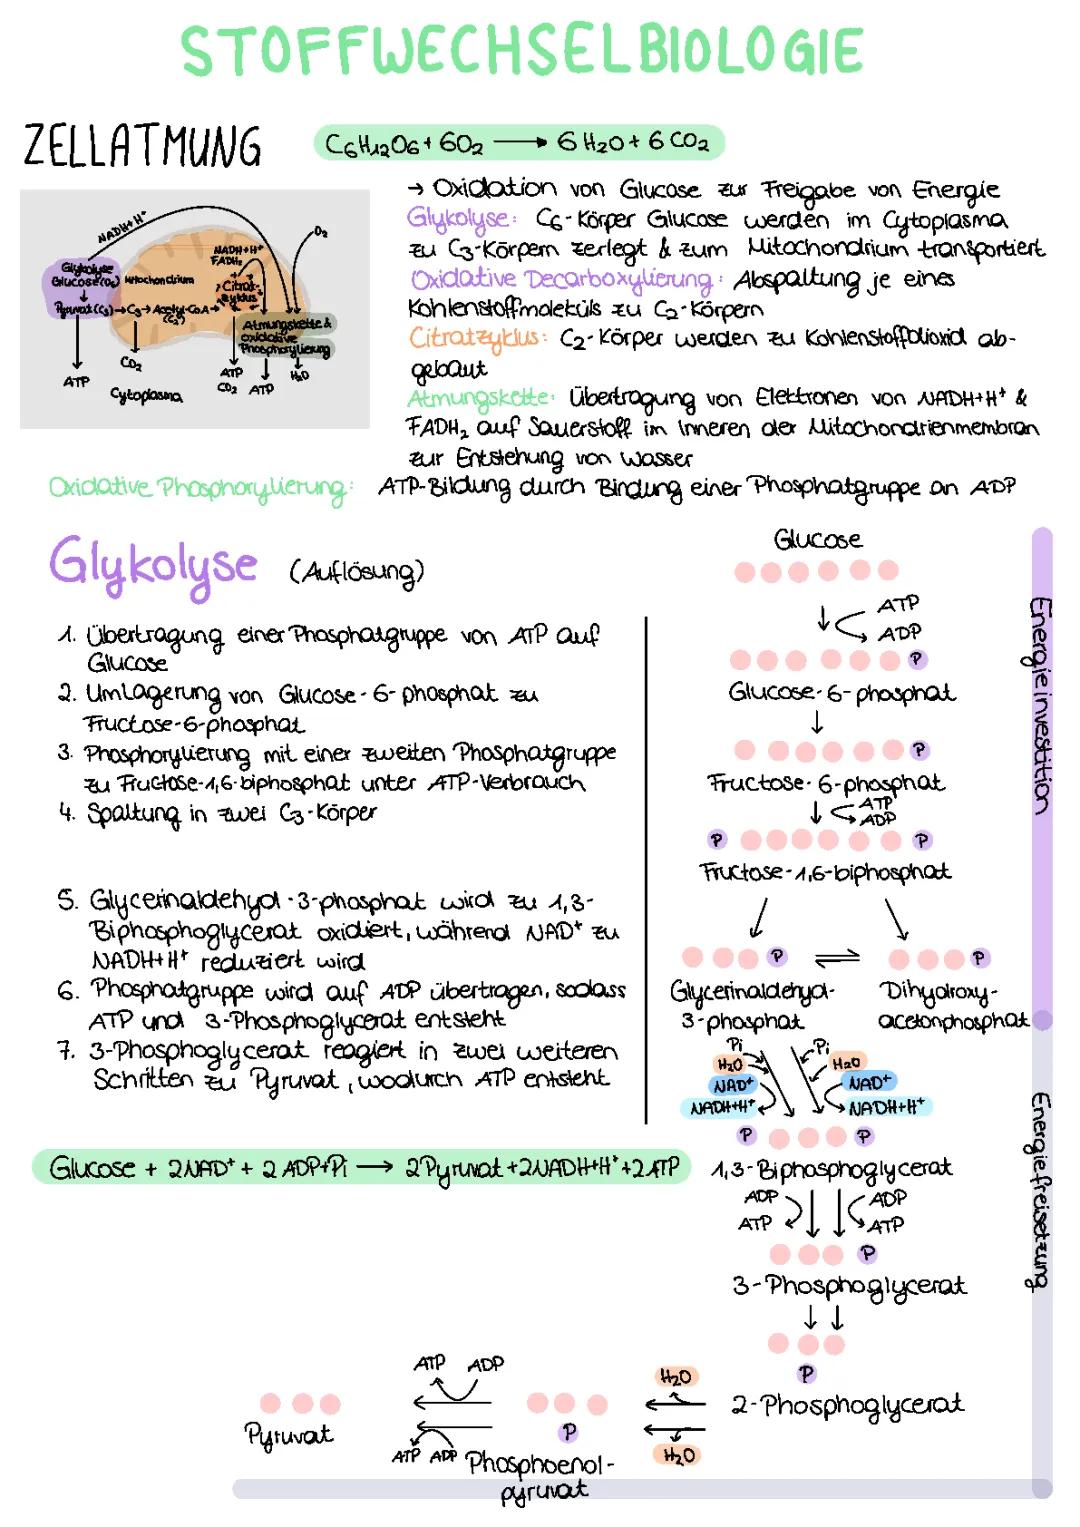 STOFFWECHSELBIOLOGIE
ZELLATMUNG
C6H12O6 + 6O2 → 6 H2O + 6 CO2
→ Oxidation von Glucose zur Freigabe von Energie
Glykolyse: C6-Körper Glucose werden im Cytoplasma
zu C3-Körpern zerlegt & zum Mitochondrium transportiert
Oxidative Decarboxylierung: Abspaltung je eines
Kohlenstoffmoleküls zu C2-Körpern
Citratzyklus: C2-Körper werden zu Kohlenstoffdioxid ab-
gebaut
Atmungskette: Übertragung von Elektronen von NADH+H+ &
FADH2 auf Sauerstoff im Inneren der Mitochondrienmembran
zur Entstehung von Wasser
Oxidative Phosphorylierung: ATP-Bildung durch Bindung einer Phosphatgruppe an ADP
NADH+H+
O2
NADH+H+
FADH2
Glykolyse
Glucose (C6)
Mitochondrium
Citrat-
zyklus
Pyruvat (C3) → C3 → Acetyl-CoA →
(C2)
Atmungskette &
oxidative
Phosphorylierung
ATP
CO2
ATP
CO2
ATP
H2O
Cytoplasma
Glykolyse (Auflösung)
1. Übertragung einer Phosphatgruppe von ATP auf
Glucose
2. Umlagerung von Glucose-6-phosphat zu
Fructose-6-phosphat
3. Phosphorylierung mit einer zweiten Phosphatgruppe
zu Fructose-1,6-biphosphat unter ATP-Verbrauch
4. Spaltung in zwei C3-Körper
5. Glycerinaldehyd-3-phosphat wird zu 1,3-
Biphosphoglycerat oxidiert, während NAD+ zu
NADH+H+ reduziert wird
6. Phosphatgruppe wird auf ADP übertragen, sodass
ATP und 3-Phosphoglycerat entsteht
7. 3-Phosphoglycerat reagiert in zwei weiteren
Schritten zu Pyruvat, wodurch ATP entsteht
Glucose + 2NAD+ + 2 ADP+Pi → 2 Pyruvat + 2NADH+H+ + 2 ATP
Glucose
ATP
ADP
P
Glucose-6-phosphat
P
Fructose-6-phosphat
ATP
ADP
P P
Fructose-1,6-biphosphat
P P
Glycerinaldehyd-
3-phosphat
Dihydroxy-
acetonphosphat
Pi Pi
H2O H2O
NAD+ NAD+
NADH+H+ NADH+H+
P P
1,3-Biphosphoglycerat
ADP ADP
ATP ATP
P
3-Phosphoglycerat
P
2-Phosphoglycerat
H2O
H2O
P
Phosphoenol-
pyruvat
ATP ADP
ATP ADP
Pyruvat
Energieinvestition
Energiefreisetzung